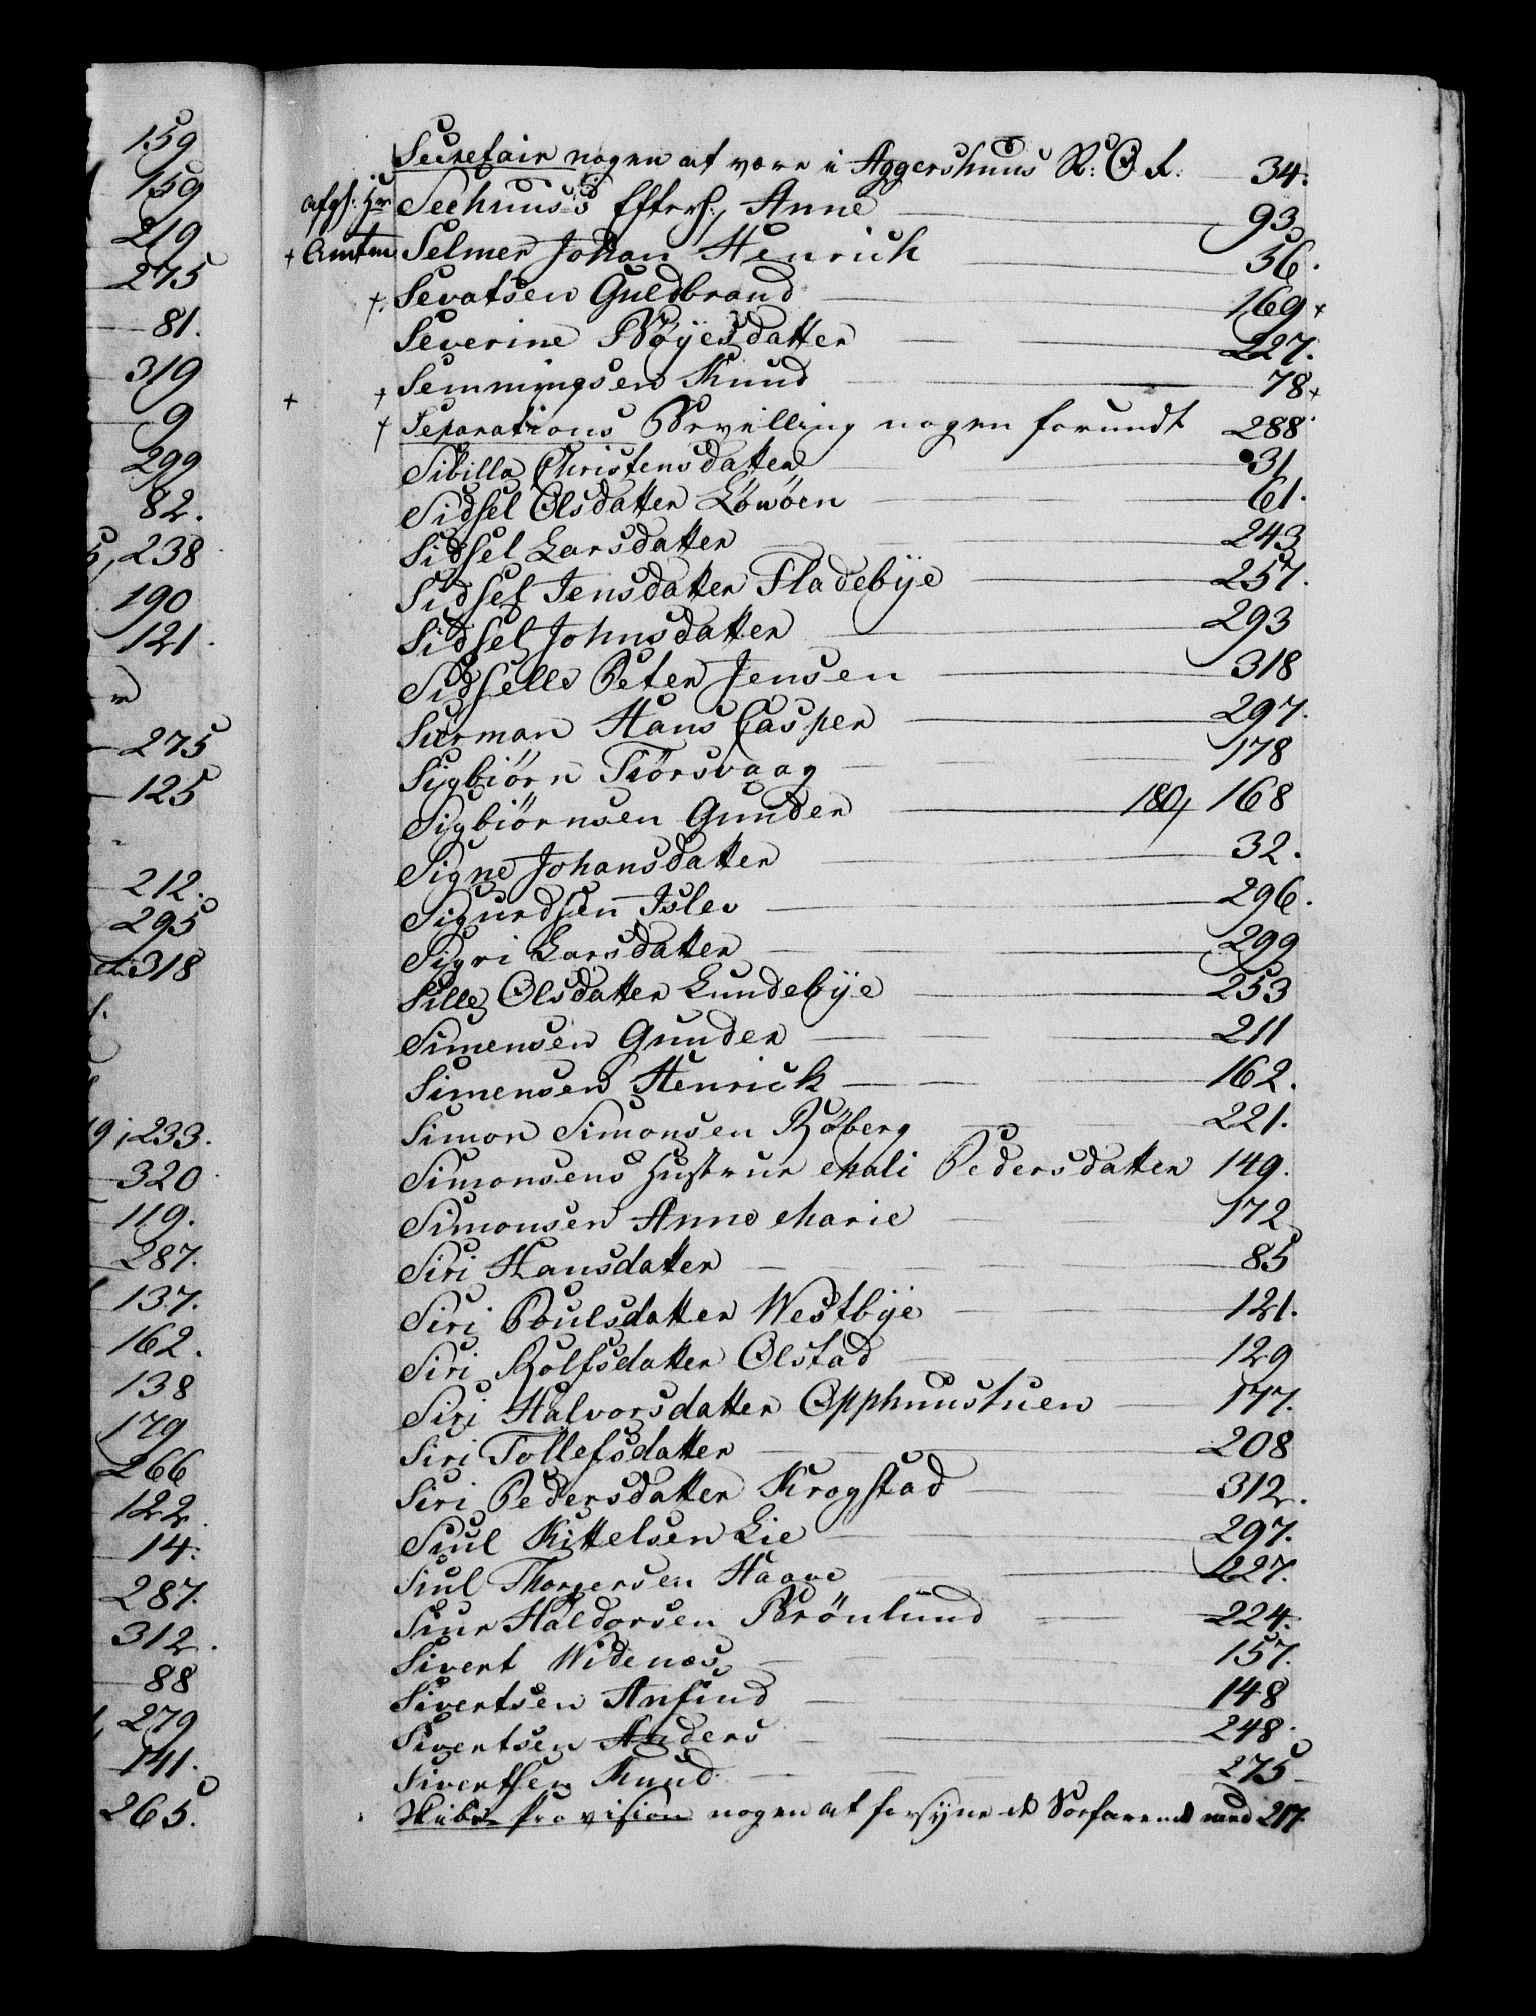 159
159
219
275
81.
319
9
299
82.
5, 238
190
121.
275
125
212.
295
318
9, 233.
320
119.
287.
137.
162.
138
179
266
122.
14.
287.
312.
88
279
141.
265.
Secretair nogen at være i Aggershuus R: O. L. 34.
afg: Hr Seehuus's Efterl: Anne 93
+ Amtm Selmer Johan Henrich 56.
+. Sevatsen Guldbrand 169 +
Severine Bøyesdatter 227.
+ + Semmingsen Knud 78 +
+ Separations Bevilling nogen forundt 288.
Sibilla Christensdatter 31
Sidsel Olsdatter Löwöen 61.
Sidsel Larsdatter 243
Sidsel Jensdatter Fladebÿe 257.
Sidsel Johnsdatter 293
Sidselle Peter Jensen 318
Sierman Hans Casper 297.
Sigbiörn Tiörsvaag 178
Sigbiörnsen Gunder 180, 168
Signe Johansdatter 32.
Sigurdsen Islev 296.
Sigri Larsdatter 299
Sille Olsdatter Lundebÿe 253
Simensen Gunder 211
Simensen Henrick 162.
Simon Simonsen Röberg 221.
Simonsens Hustrue Mali Pedersdatter 149.
Simonsen Anne Marie 172
Siri Hansdatter 85
Siri Poulsdatter Westbÿe 121.
Siri Rolfsdatter Olstad 129
Siri Halvorsdatter Opphuustuen 177.
Siri Tollefsdatter 208
Siri Pedersdatter Krogstad 312.
Siul Kittelsen Lie 297.
Siul Thorgersen Haave 227.
Siur Haldorsen Brönlund 224.
Sivert Widenæs 157.
Sivertsen Anfind 148
Sivertsen Anders 248.
Sivertsen Knud 275
Skibs Provision nogen at forsÿne de Søefarende med 217.